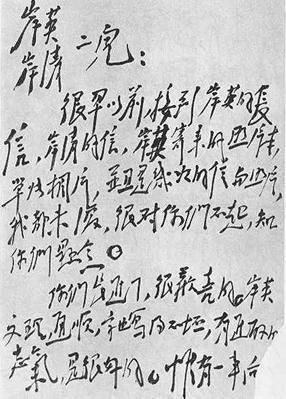 岸英
岸清 二兒：
很早以前，接到岸英的長
信，岸清的信，岸英寄来的照片本，
單张相片，並且是幾次的信与照片，
我都未復，很对你们不起，知
你們懸念。
你们長進了，很歡喜的。岸英
文理通順，字也写得不坏，有進取的
志氣，是很好的。惟有一事向